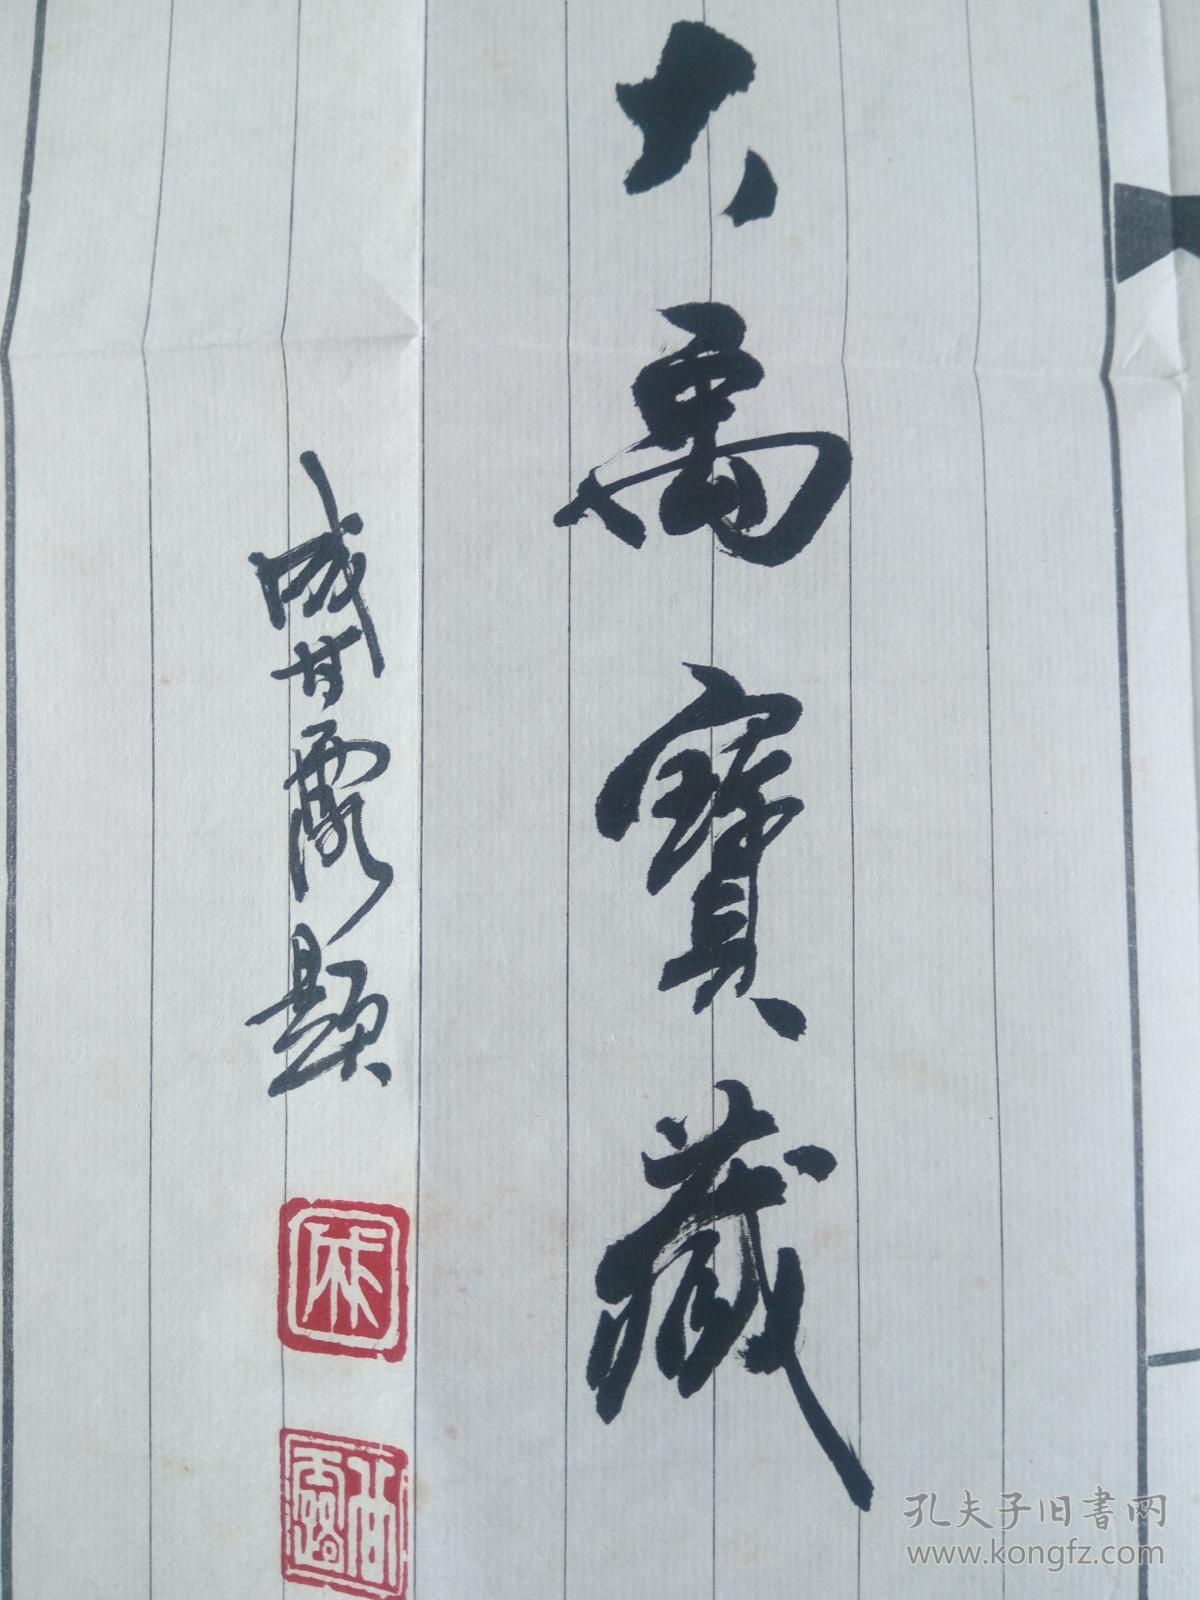 大禹寶藏
成甘露題
成
甘露
孔夫子旧书网
www.kongfz.com